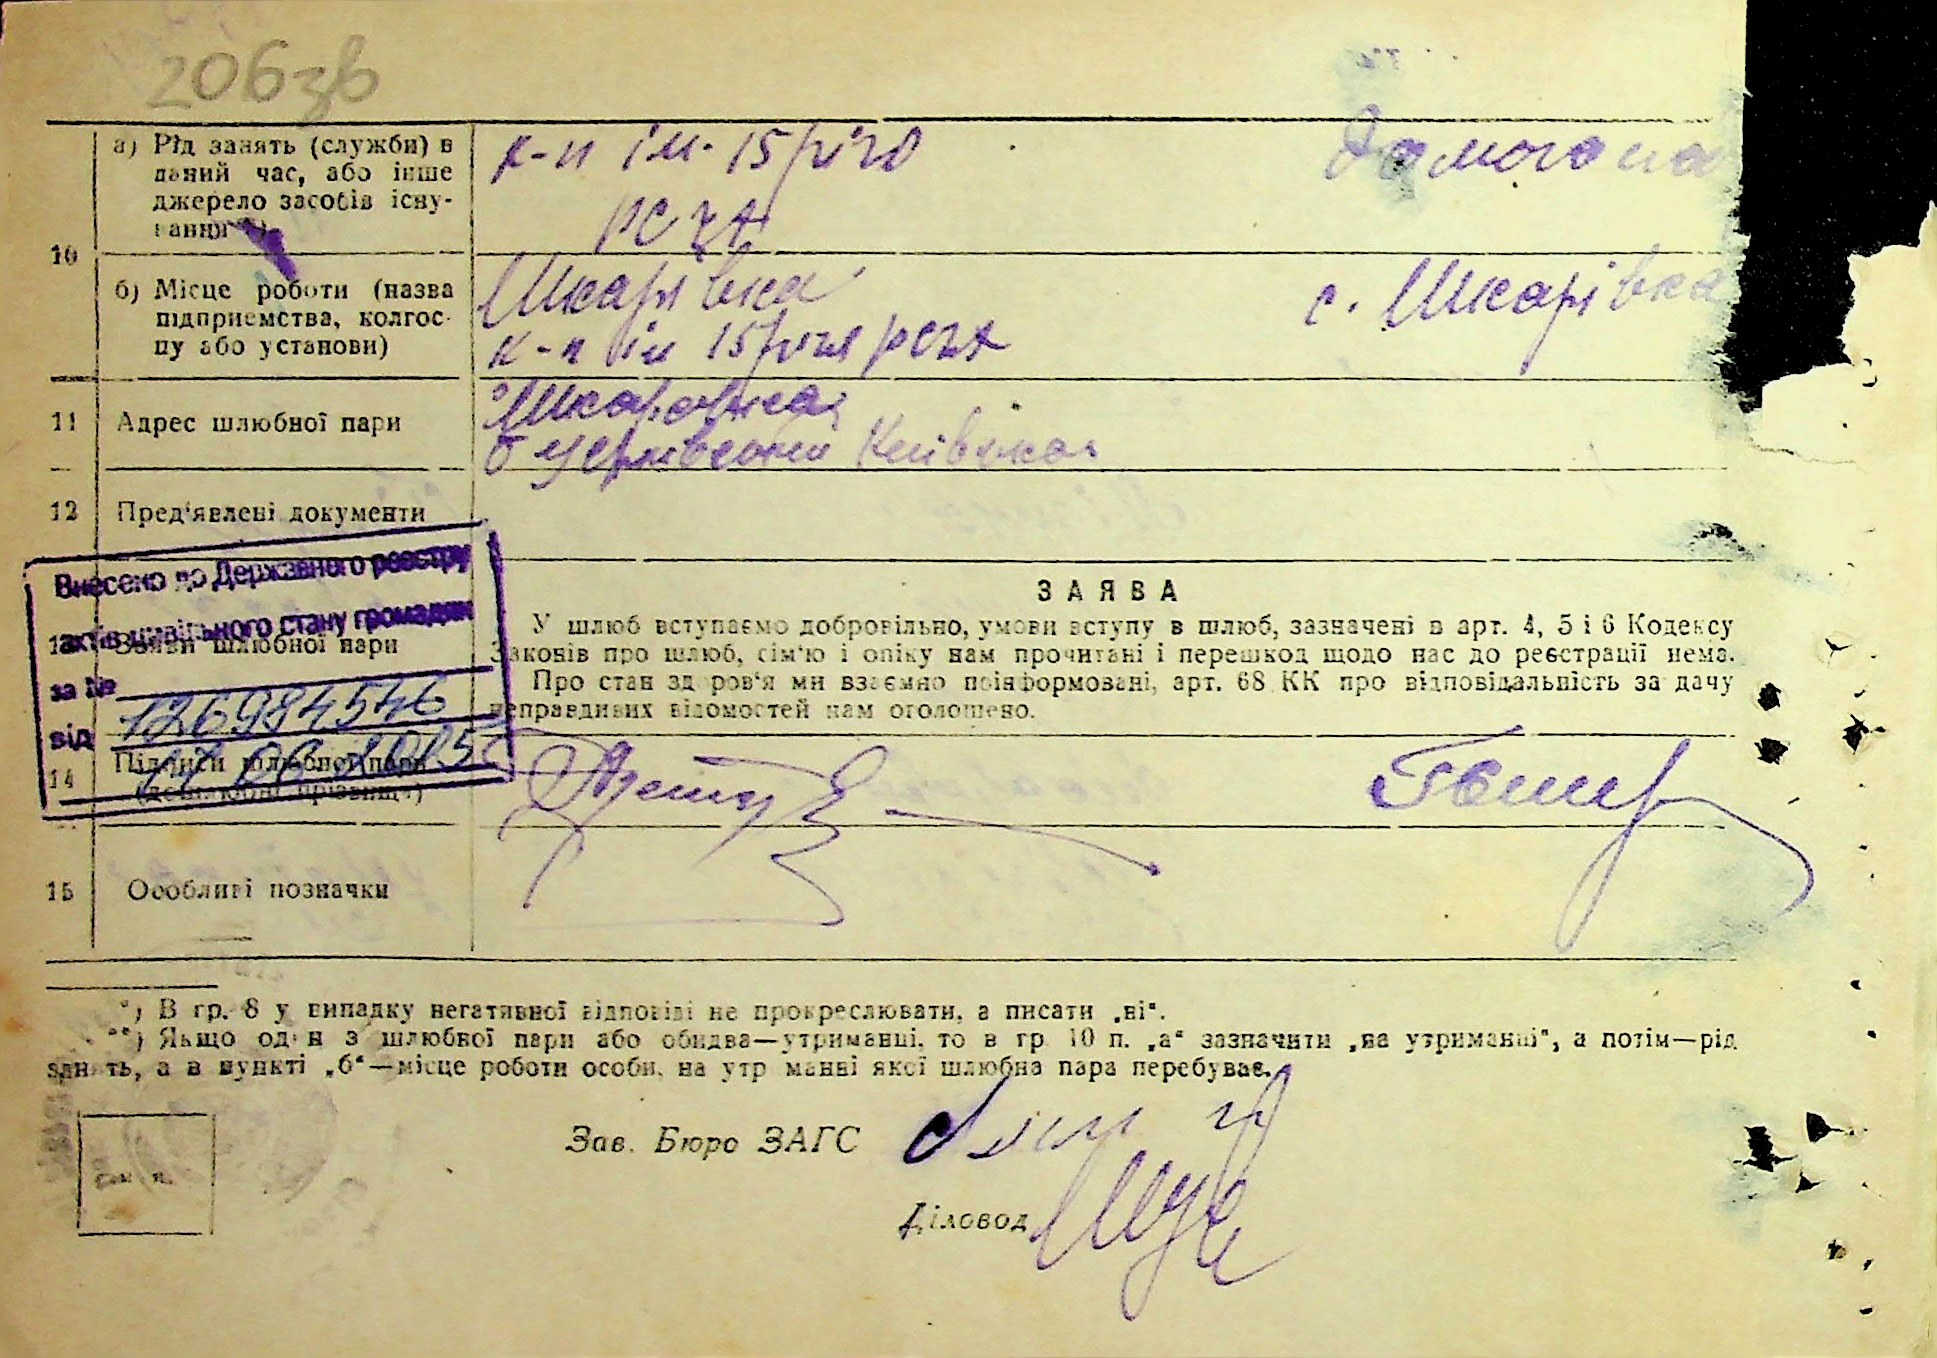 206зв
а) Рід занять (служби) в
даний час, або інше
джерело засобів існу-
вання**)
к-п ім. 15/річя
РСЧА
Домогосп
10
б) Місце роботи (назва
підприємства, колгос-
пу або установи)
Шкарівка
к-п ім 15/річя РСЧА
с. Шкарівка
11
Адрес шлюбної пари
Шкаровка
б церківський Київська
12
Пред'явлені документи
Внесено до Державного реєстру
актів цивільного стану громадян
за № 126984546
від 17 06 2025
Заяви шлюбної пари
ЗАЯВА
У шлюб вступаємо добровільно, умови вступу в шлюб, зазначені в арт. 4, 5 і 6 Кодексу
Законів про шлюб, сім'ю і опіку нам прочитані і перешкод щодо нас до реєстрації нема.
Про стан здоров'я ми взаємно поінформовані, арт. 68 КК про відповідальність за дачу
неправдивих відомостей нам оголошено.
14
Підписи шлюбної пари
(дошлюбні прізвища)
15
Особливі позначки
*) В гр. 8 у випадку негативної відповіді не прокреслювати, а писати „ні".
**) Якщо один з шлюбної пари або обидва—утриманці, то в гр. 10 п. „а" зазначити „на утриманні", а потім—рід
занять, а в пункті „б"—місце роботи особи, на утриманні якої шлюбна пара перебуває.
Зав. Бюро ЗАГС
Діловод